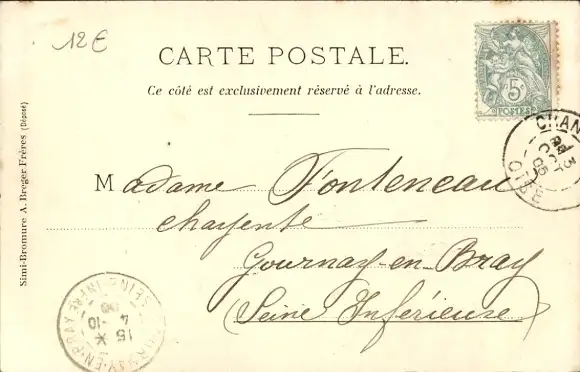 12€
CARTE POSTALE.
Ce côté est exclusivement réservé à l'adresse.
5c
POSTES
CHAN
3
OCT
05
OISE
Simi-Bromure A. Breger Frères (Déposé)
Madame Fonteneau
Gournay-en-Bray
(Seine Inférieure)
GOURNAY-EN-BRAY
SEINE-INFRE
15
4-10